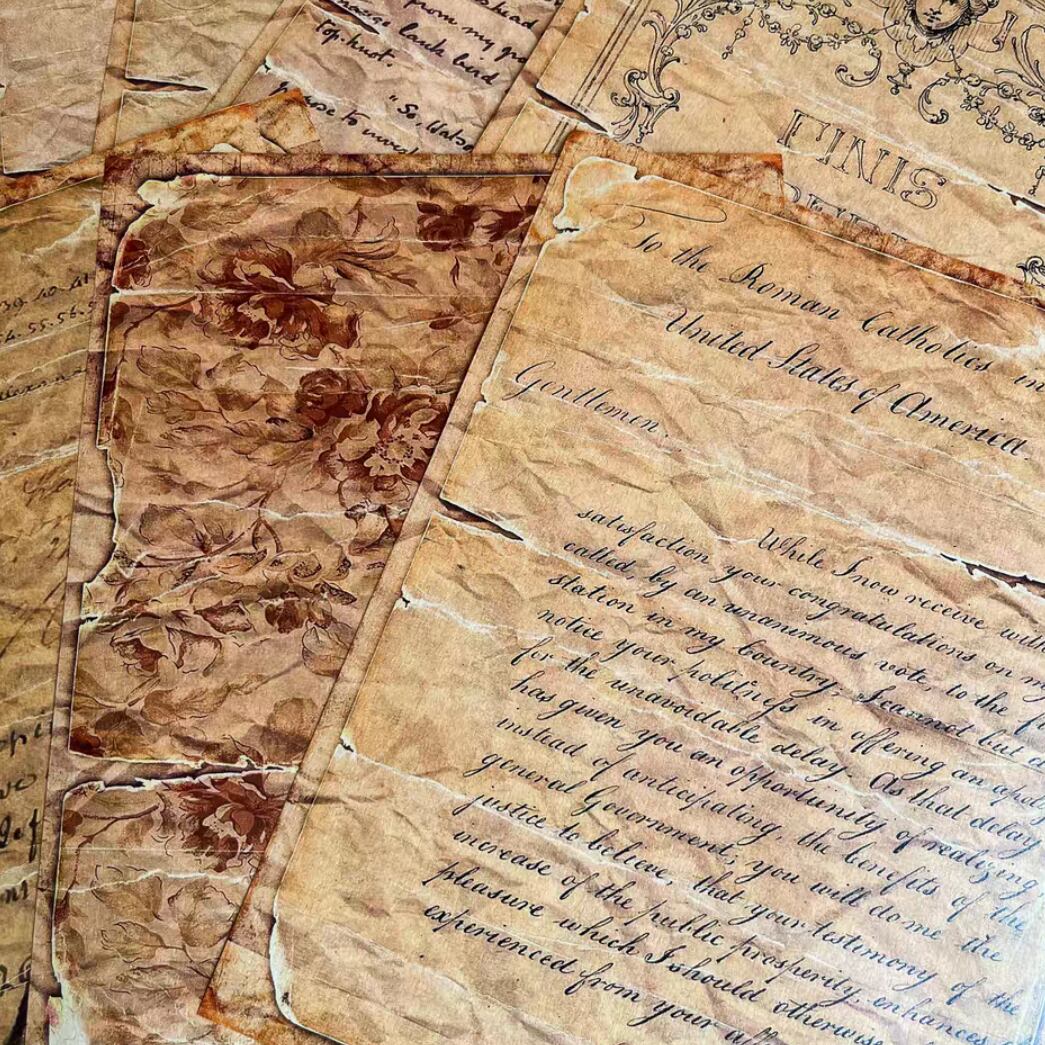 from my
lank bird
Top-knot.
"So, Wats
FINIS
39.40.41
55.56.5
To the Roman Catholics in
United States of America.
Gentlemen,
While I now receive with
satisfaction your congratulations on my
called, by an unanimous vote, to the f
station in my Country; I cannot but
notice your politeness in offering an apol
for the unavoidable delay. As that delay
has given you an opportunity of realizing,
instead of anticipating, the benefits of the
general Government; you will do me the
justice to believe, that your testimony of the
increase of the public prosperity, enhances
pleasure which I should otherwise
experienced from your aff